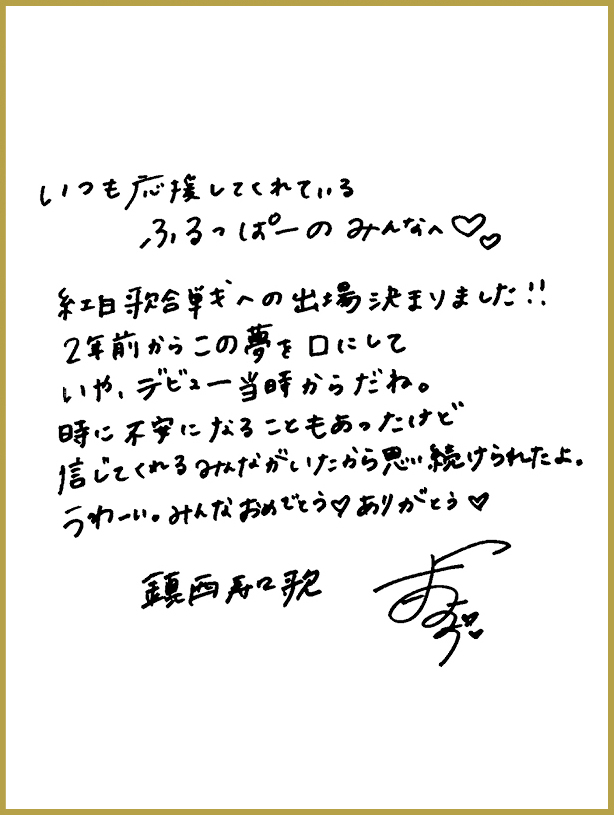 いつも応援してくれている
ふるっぱーのみんなへ♡♡
紅白歌合戦への出場決まりました!!
2年前からこの夢を口にして
いや、デビュー当時からだね。
時に不安になることもあったけど
信じてくれるみんながいたから思い続けられたよ。
うわーい。みんなおめでとう♡ありがとう♥
鎮西寿々歌